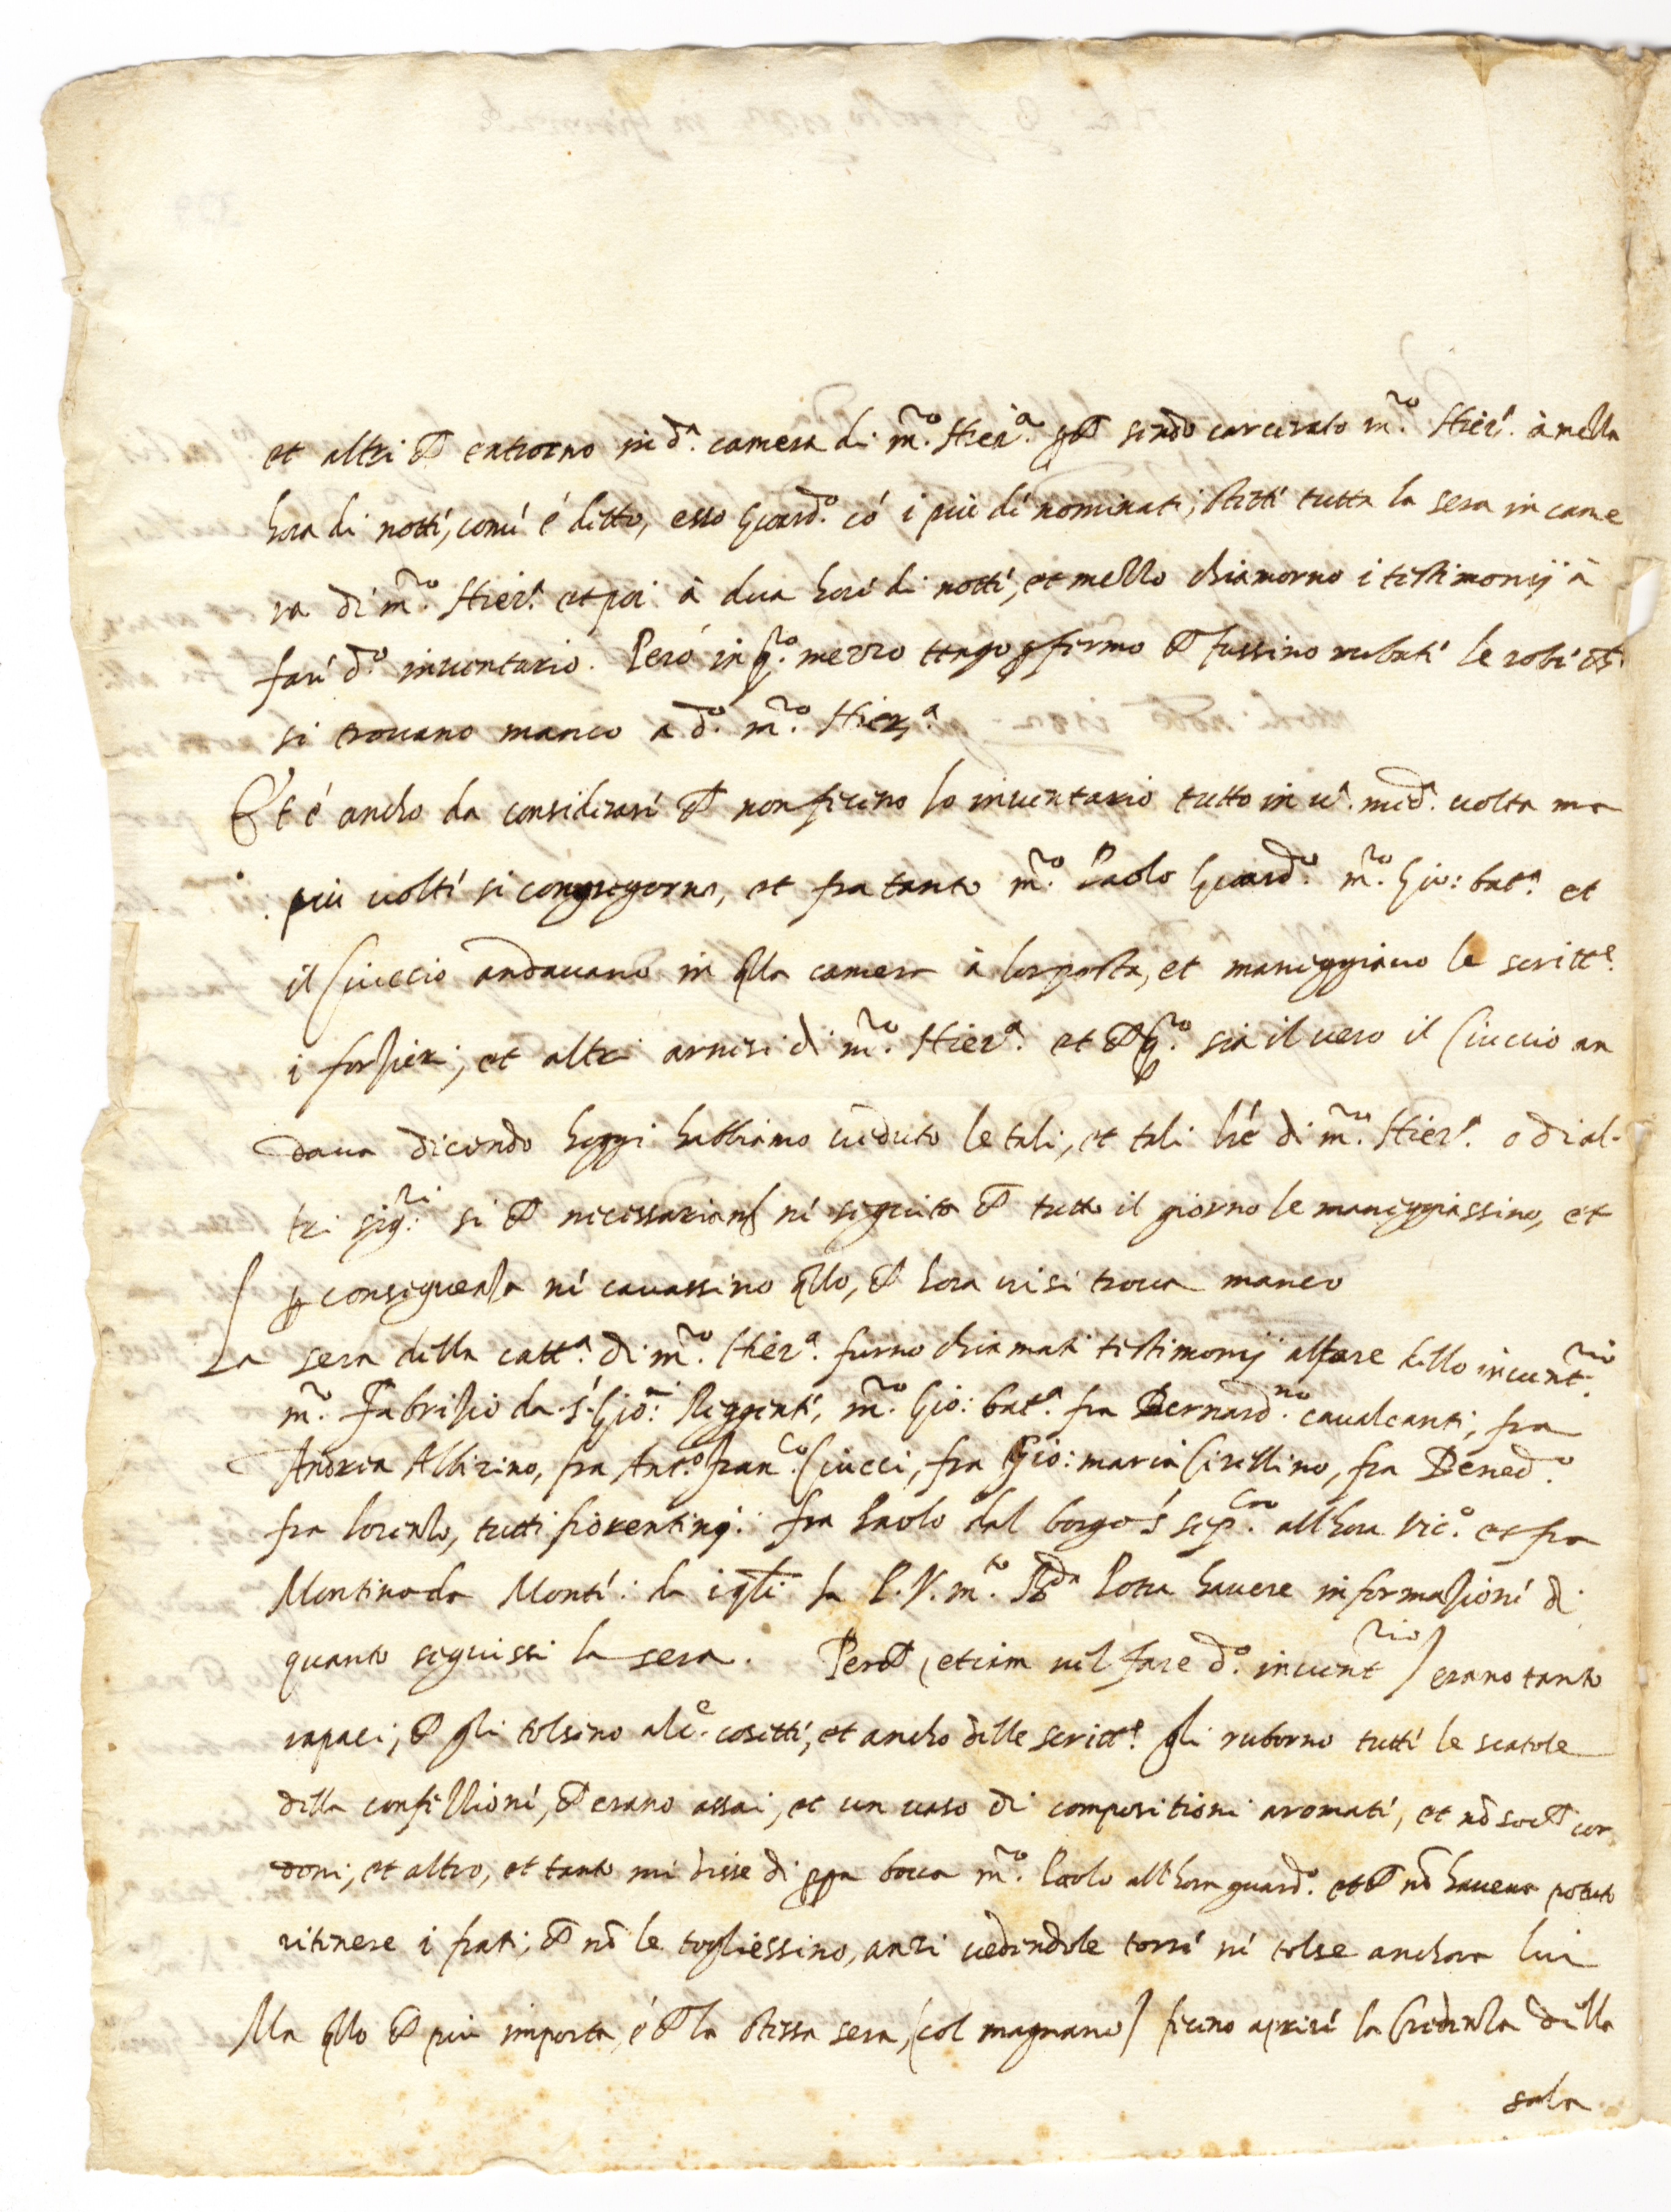 et altri che entrorno in d.ª camera di m.ro Hier.ª p che sendo carcerato m.ro Hier.ª à mezza
hora di notte, come è detto, esso Guard.o cō i più dé nominati, stette tutta la sera in came
ra di m.ro Hier.ª et poi à dua hore di notte, et mezzo chiamorno i testimonij à
fare d.o inventario. Però in q.sto mezzo tengo p fermo che fussino rubate le robe che
si trovano manco a d.o m.ro Hier.ª
Et è ancho da considerare che non fecino lo inventario tutto in u.ª med.ª volta ma
più volte si congregorno, et fra tanto m.ro Paolo Guard.o m.ro Gio: bat.ª et
il Ciuccio andavano in qlla camera à lor posta, et maneggiavo le scritt.e
i forzieri, et altri arnesi di m.ro Hier.ª et che q.sto sia il vero il Ciuccio an
dava dicendo hoggi habbiamo veduto le tali, et tali lr̃e di m.ro Hier.ª o di al-
tri sig.ri si che necessariamte ne seguita che tutto il giorno le maneggiassino, et
p conseguenza ne cavassino qllo, che hora vi si trova manco
La sera della catt.ª di m.ro Hier.ª furno chiamati testimonij al fare dello invent.rio
m.ro Fabrizio da S. Gio: Reggente, m.ro Gio: bat.ª fra Bernard.no cavalcanti, fra
Andrea Albizino, fra Ant.o fran.co Ciucci, fra Gio: maria Cirellino, fra Bened.o
fra Lorenzo, tutti fiorentini. fra Paolo dal borgo S. sep.cro all'hora vic.o et fra
Montino da Monte: da i qli la P. V. m.to R.da Potra havere informazione di
quanto seguissi la sera. Perche (etiam nel fare d.o invent.rio) erano tanto
rapaci, che gli tolsino alc.e cosette, et ancho delle scritt.e gli ruborno tutte le scatole
della confezzione, che erano assai, et un vaso di compositioni aromate, et nō so che cor
doni, et altro, et tanto mi disse di ppa bocca m.ro Paolo all'hora guard.o et che nō haveva potuto
ritenere i frati, che nō le togliessino, anzi vedendole torre ne tolse anchora lui
Ma qllo che più importa, è che la stessa sera, (col magnano) fecino aprire la Credenza della
sala